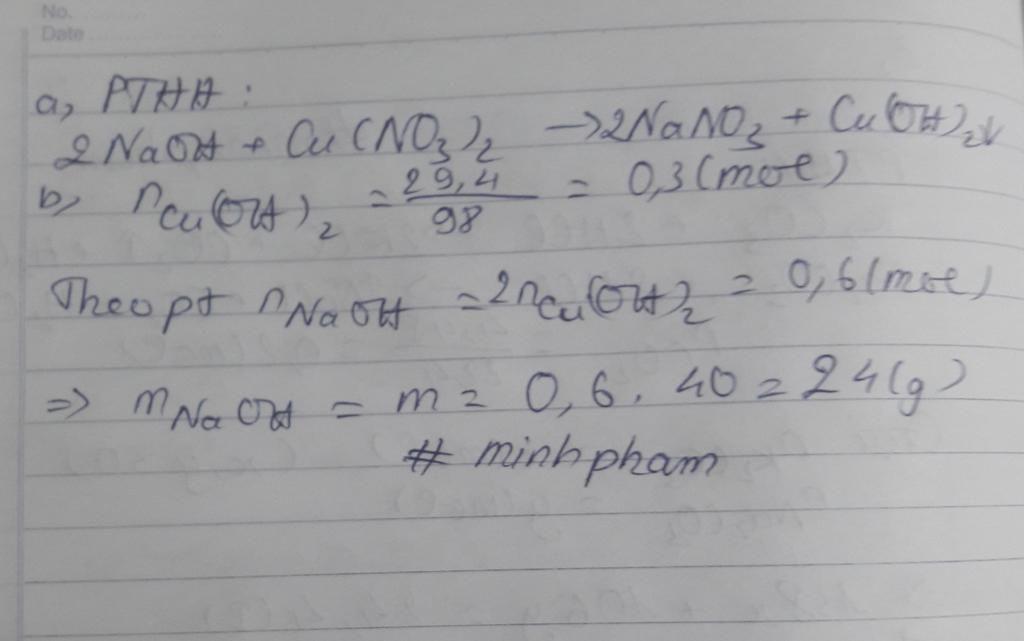 No.
Date
a, PTHH :
2NaOH + Cu(NO₃)₂ → 2NaNO₃ + Cu(OH)₂↓
b, nCu(OH)₂ = 29,4/98 = 0,3 (mol)
Theo pt nNaOH = 2nCu(OH)₂ = 0,6 (mol)
=> mNaOH = m = 0,6. 40 = 24 (g)
# minhpham